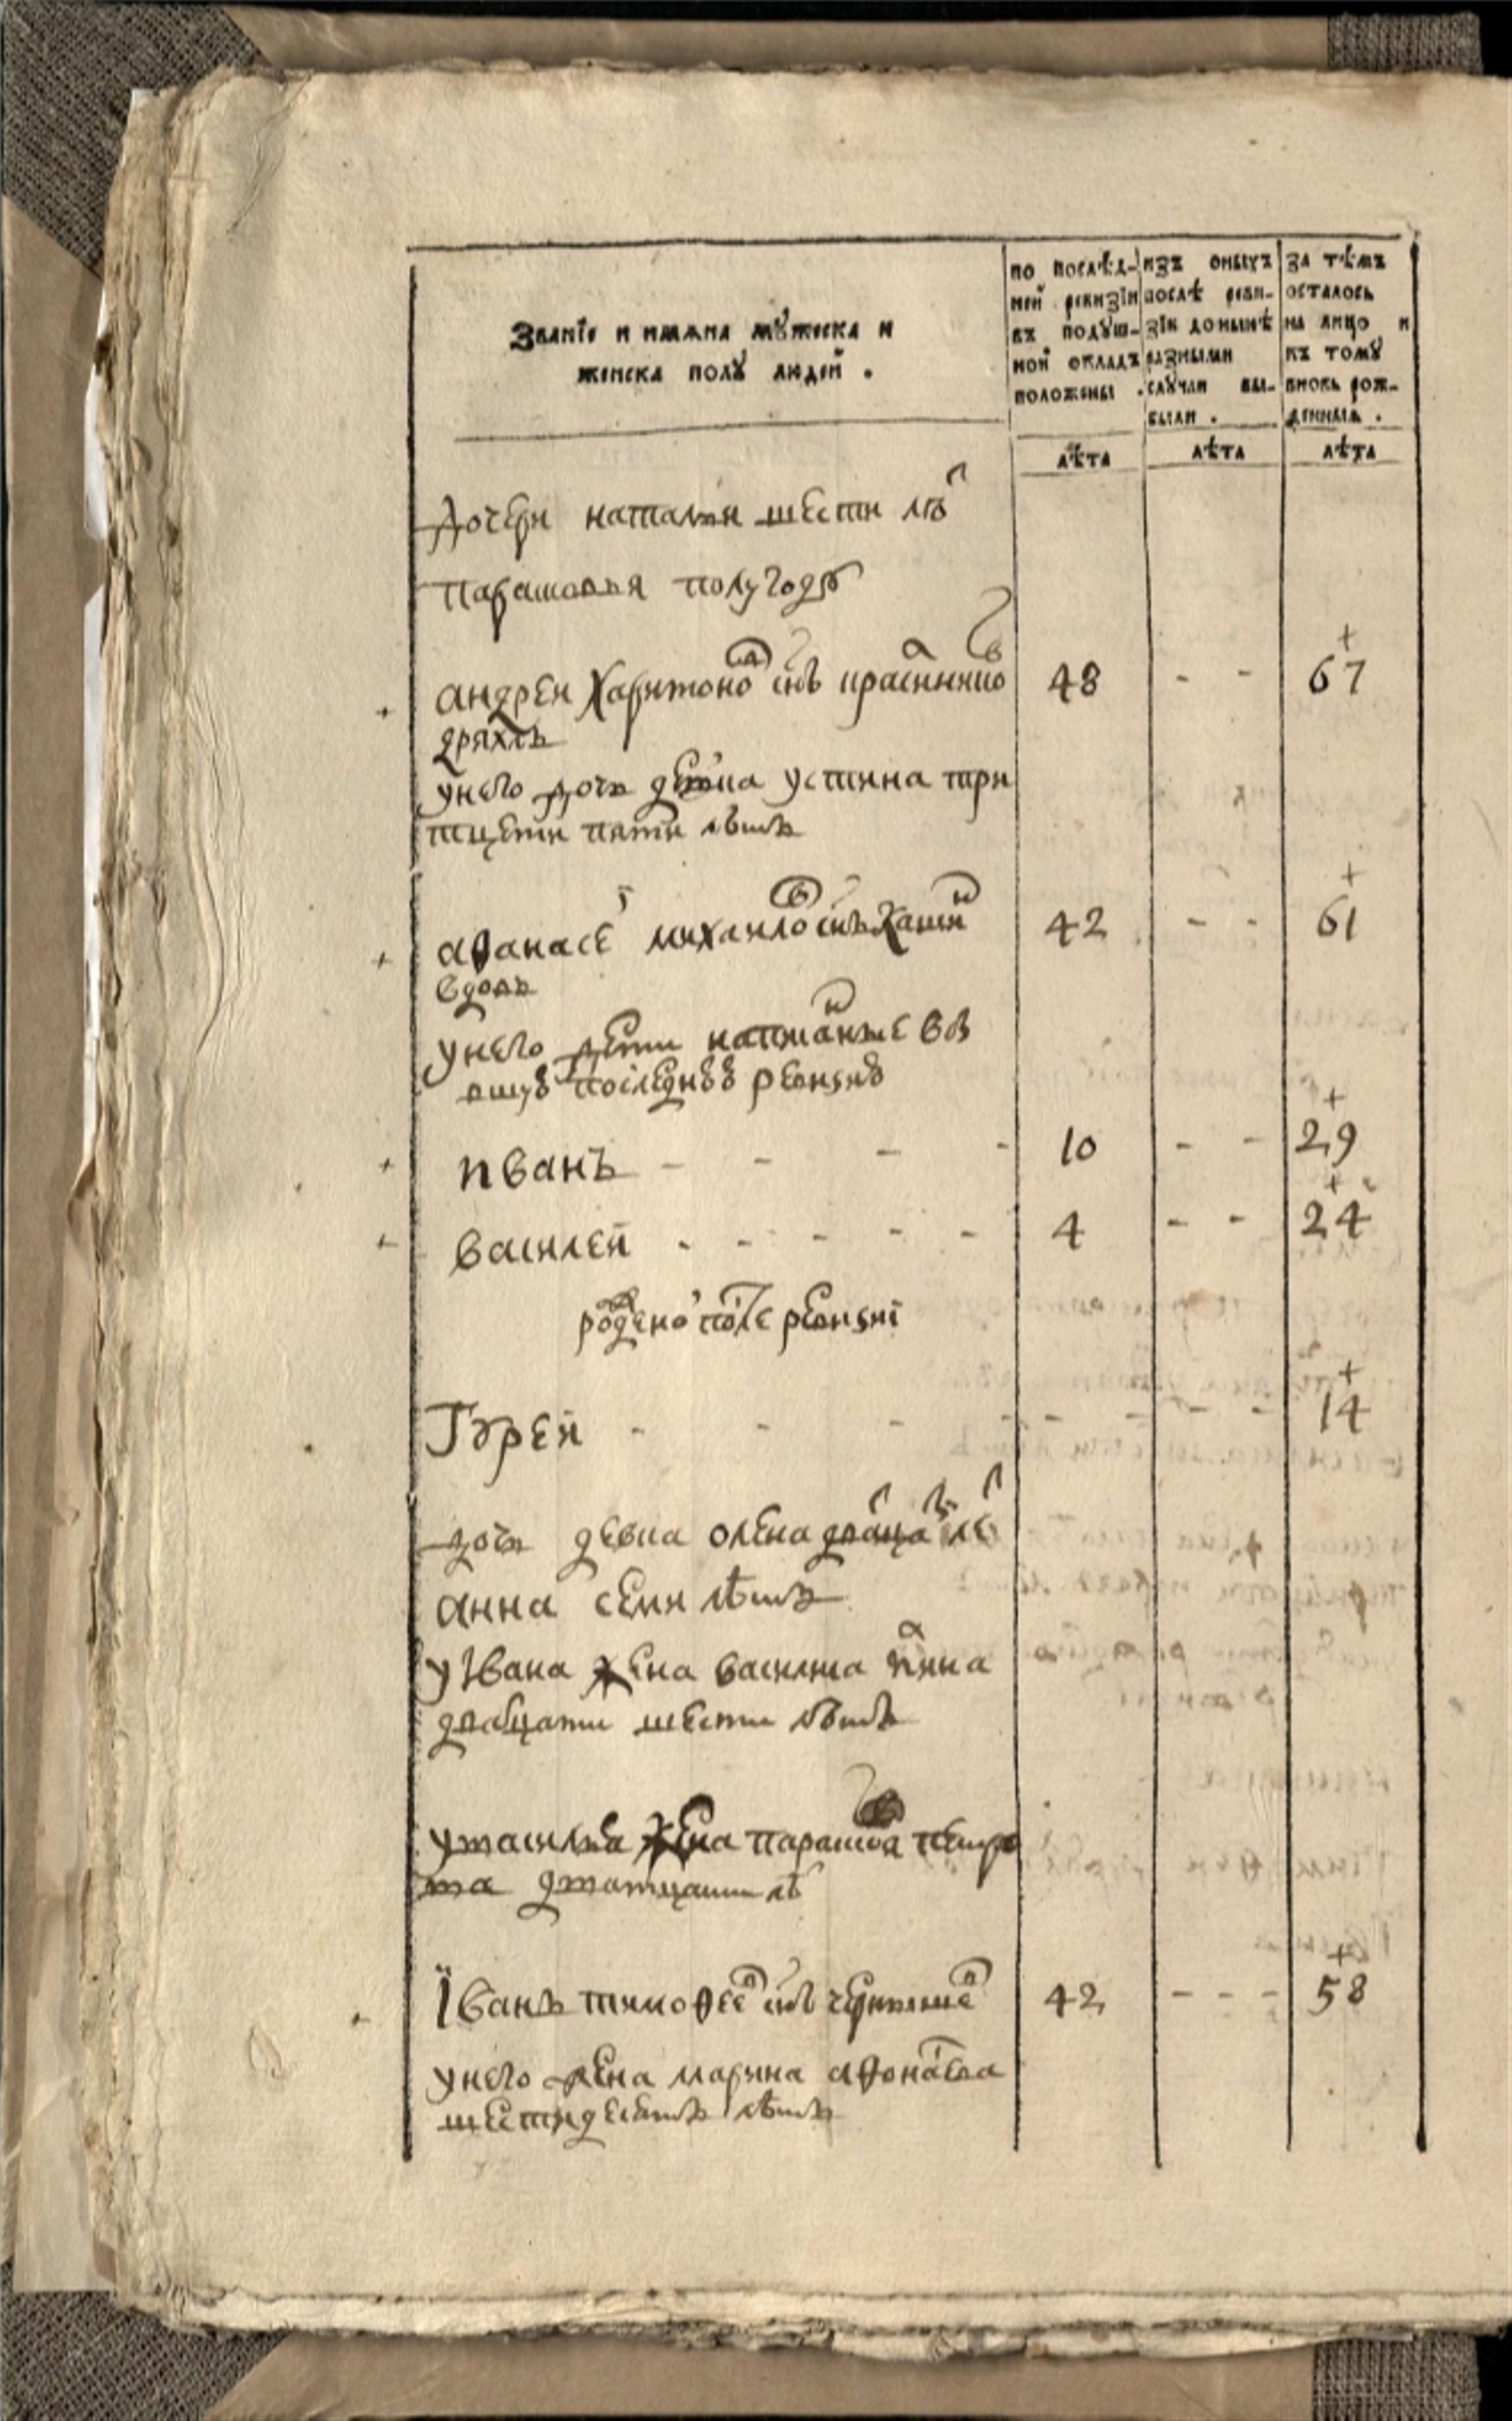 Званїе и имѧна мꙋжеска и
женска полꙋ людей .
по послѣд-
ней ревизїи
въ подꙋш-
ной окладъ
положены .
изъ оныхъ
послѣ реви-
зїи донынѣ
разными
слꙋчаи вы-
были .
за тѣмъ
осталось
на лицо и
къ томꙋ
вновь рож-
денныѧ .
лѣта лѣта лѣта
дочери наталѣи шести лѣт
парасковья полугоду
андреи харитонов снъ 48 - - 67
дряхлъ
унего дочь девка устина три
тцети пяти лѣтъ
аѳанасей михаилов снъ кашин 42 - - 61
вдовъ
унего дети написанные в
последнюю ревизию
иванъ - - - - 10 - - 29
василей - - - - - 4 - - 24
рождено после ревизиї
Гурей - - - - - - - - 14
дочь девка олена дватцать лет
анна семи лѣтъ
уІвана жена василиса
двацати шести лѣтъ
увасилья жена парасковья петро
ва дватцати лѣт
Їванъ тимоѳеев снъ 42 - - - 58
унего жена марина аѳонасева
шестидесятъ лѣтъ